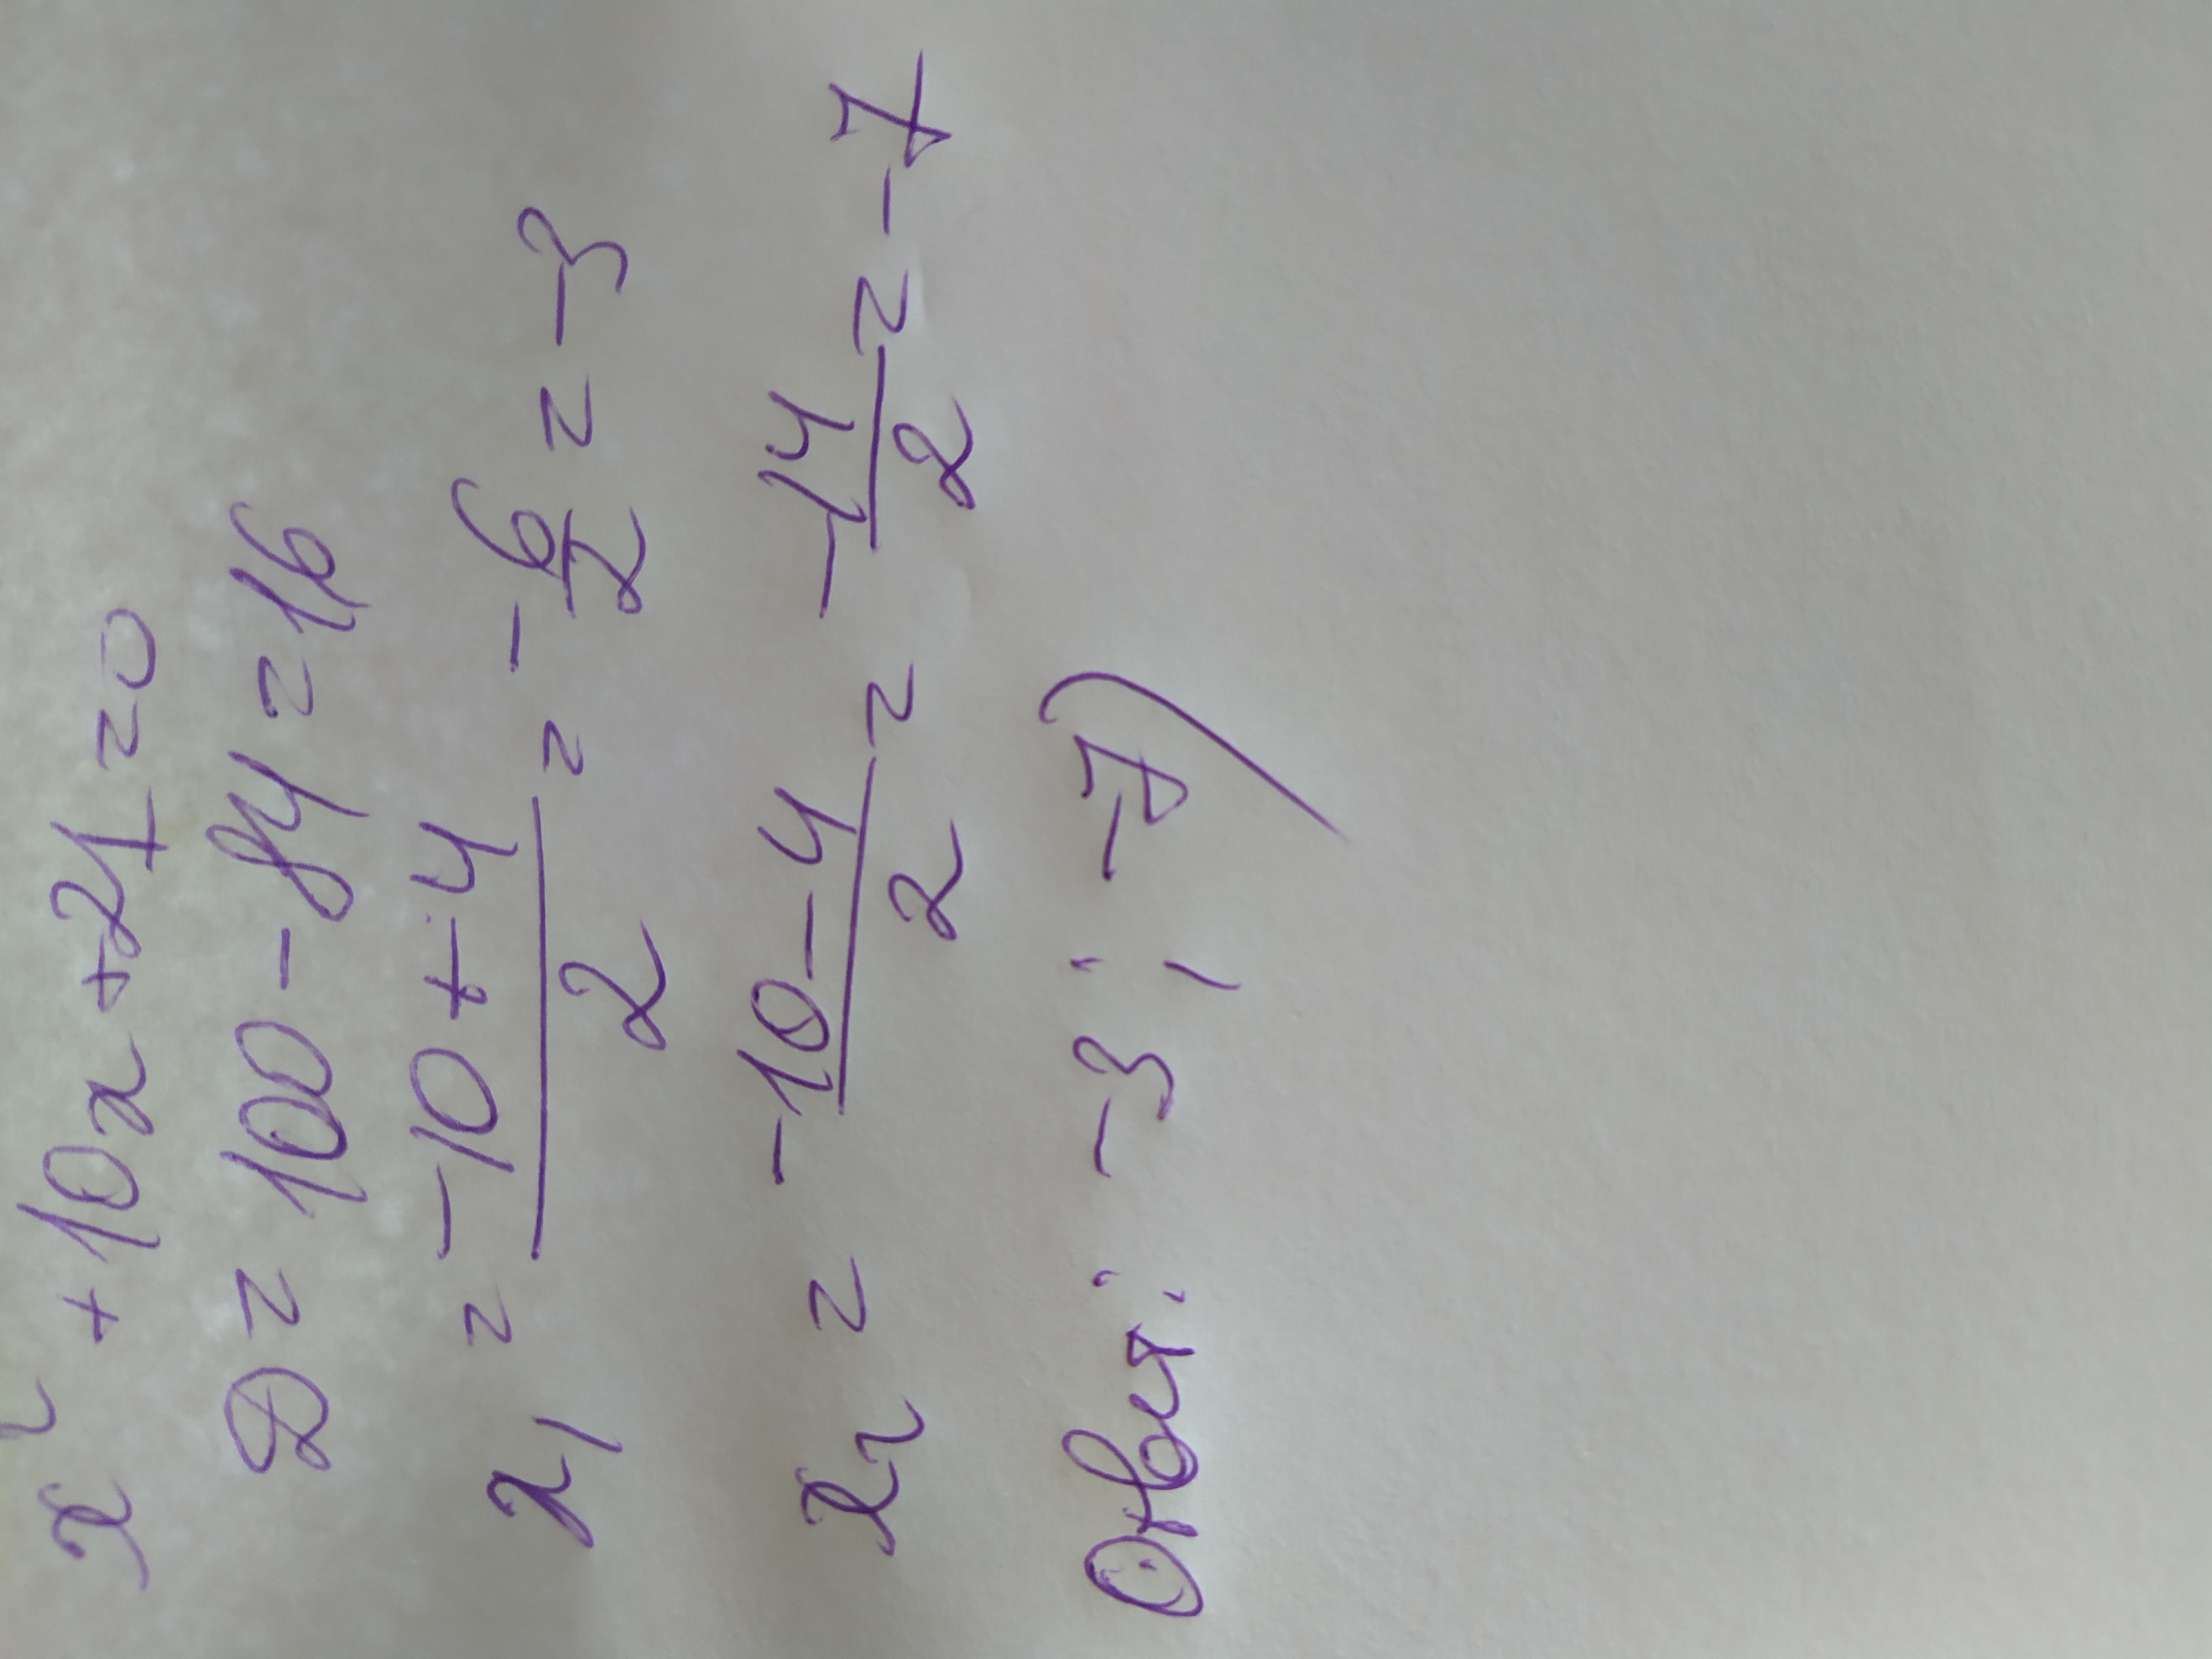 x² + 10x + 21 = 0
D = 100 - 84 = 16
x₁ = (-10 + 4)/2 = -6/2 = -3
x₂ = (-10 - 4)/2 = -14/2 = -7
Ответ: -3; -7